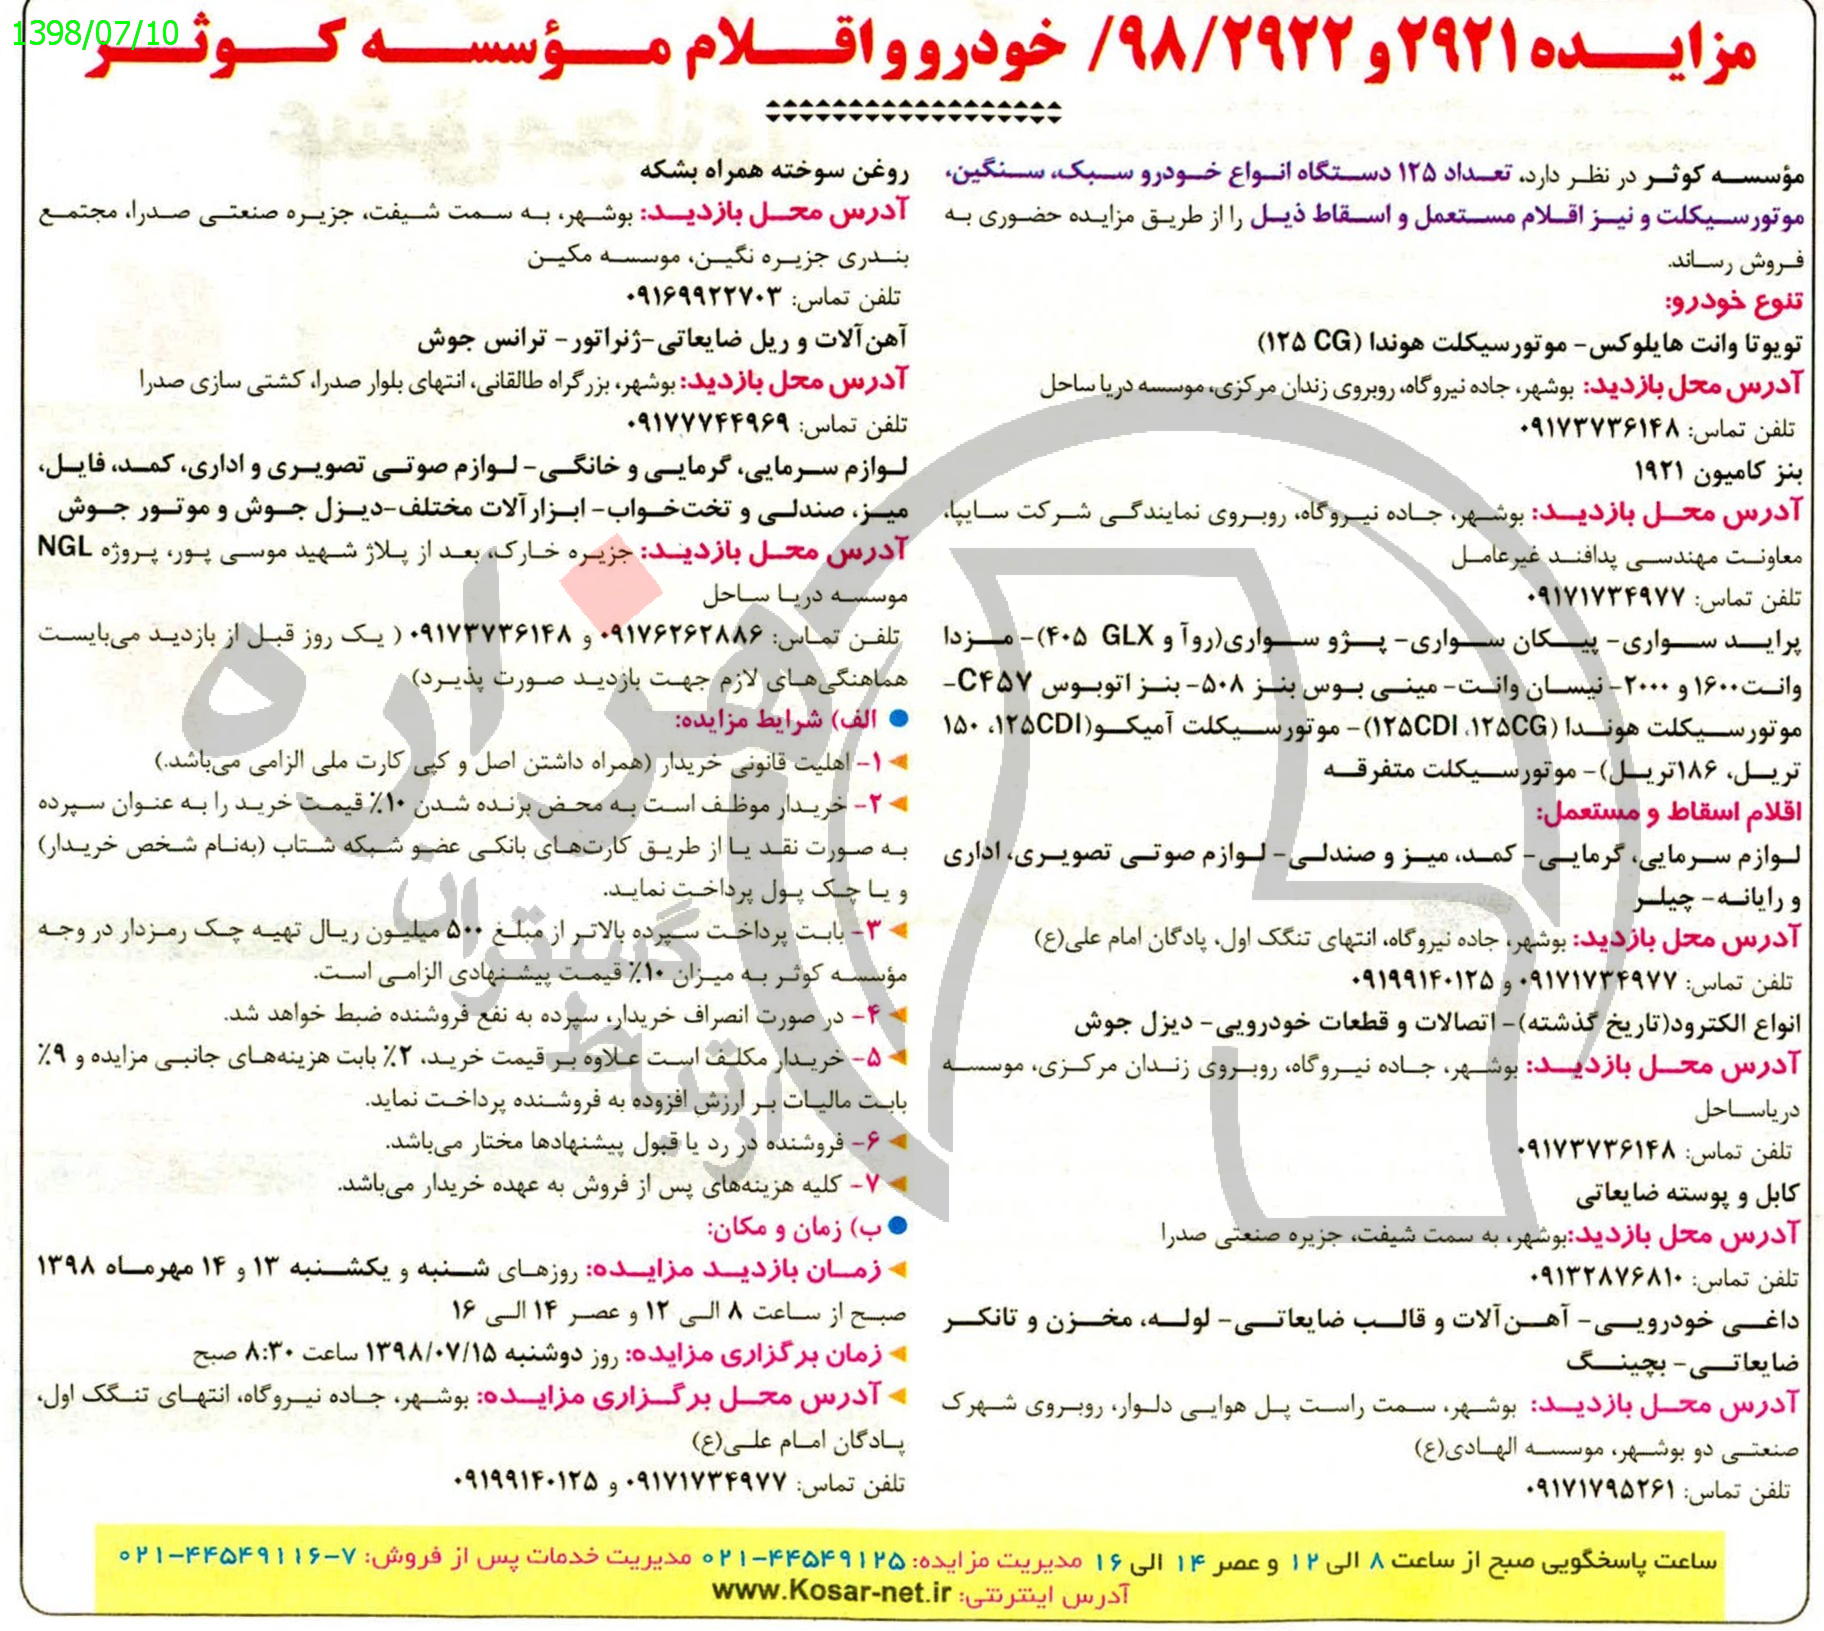 1398/07/10
مزایده ۲۹۲۱ و ۹۸/۲۹۲۲/ خودرو و اقلام مؤسسه کوثر
مؤسسه کوثر در نظر دارد، تعداد ۱۲۵ دستگاه انواع خودرو سبک، سنگین،
موتورسیکلت و نیز اقلام مستعمل و اسقاط ذیل را از طریق مزایده حضوری به
فروش رساند.
تنوع خودرو:
تویوتا وانت هایلوکس- موتورسیکلت هوندا (۱۲۵ CG)
آدرس محل بازدید: بوشهر، جاده نیروگاه، روبروی زندان مرکزی، موسسه دریا ساحل
تلفن تماس: ۰۹۱۷۳۷۳۶۱۴۸
بنز کامیون ۱۹۲۱
آدرس محل بازدید: بوشهر، جاده نیروگاه، روبروی نمایندگی شرکت سایپا،
معاونت مهندسی پدافند غیرعامل
تلفن تماس: ۰۹۱۷۱۷۳۴۹۷۷
پراید سواری- پیکان سواری- پژو سواری(روآ و ۴۰۵ GLX)- مزدا
وانت۱۶۰۰ و ۲۰۰۰- نیسان وانت- مینی بوس بنز ۵۰۸- بنز اتوبوس C۴۵۷-
موتورسیکلت هوندا (۱۲۵CDI ،۱۲۵CG)- موتورسیکلت آمیکو(۱۲۵CDI، ۱۵۰
تریل، ۱۸۶تریل)- موتورسیکلت متفرقه
اقلام اسقاط و مستعمل:
لوازم سرمایی، گرمایی- کمد، میز و صندلی- لوازم صوتی تصویری، اداری
و رایانه- چیلر
آدرس محل بازدید: بوشهر، جاده نیروگاه، انتهای تنگک اول، پادگان امام علی(ع)
تلفن تماس: ۰۹۱۷۱۷۳۴۹۷۷ و ۰۹۱۹۹۱۴۰۱۲۵
انواع الکترود(تاریخ گذشته)- اتصالات و قطعات خودرویی- دیزل جوش
آدرس محل بازدید: بوشهر، جاده نیروگاه، روبروی زندان مرکزی، موسسه
دریاساحل
تلفن تماس: ۰۹۱۷۳۷۳۶۱۴۸
کابل و پوسته ضایعاتی
آدرس محل بازدید:بوشهر، به سمت شیفت، جزیره صنعتی صدرا
تلفن تماس: ۰۹۱۳۲۸۷۶۸۱۰
داغی خودرویی- آهن‌آلات و قالب ضایعاتی- لوله، مخزن و تانکر
ضایعاتی- بچینگ
آدرس محل بازدید: بوشهر، سمت راست پل هوایی دلوار، روبروی شهرک
صنعتی دو بوشهر، موسسه الهادی(ع)
تلفن تماس: ۰۹۱۷۱۷۹۵۲۶۱
روغن سوخته همراه بشکه
آدرس محل بازدید: بوشهر، به سمت شیفت، جزیره صنعتی صدرا، مجتمع
بندری جزیره نگین، موسسه مکین
تلفن تماس: ۰۹۱۶۹۹۲۲۷۰۳
آهن‌آلات و ریل ضایعاتی-ژنراتور- ترانس جوش
آدرس محل بازدید: بوشهر، بزرگراه طالقانی، انتهای بلوار صدرا، کشتی سازی صدرا
تلفن تماس: ۰۹۱۷۷۷۴۴۹۶۹
لوازم سرمایی، گرمایی و خانگی- لوازم صوتی تصویری و اداری، کمد، فایل،
میز، صندلی و تخت‌خواب- ابزارآلات مختلف-دیزل جوش و موتور جوش
آدرس محل بازدید: جزیره خارک، بعد از پلاژ شهید موسی پور، پروژه NGL
موسسه دریا ساحل
تلفن تماس: ۰۹۱۷۶۲۶۲۸۸۶ و ۰۹۱۷۳۷۳۶۱۴۸ ( یک روز قبل از بازدید می‌بایست
هماهنگی‌های لازم جهت بازدید صورت پذیرد)
● الف) شرایط مزایده:
۱- اهلیت قانونی خریدار (همراه داشتن اصل و کپی کارت ملی الزامی می‌باشد.)
۲- خریدار موظف است به محض برنده شدن ۱۰٪ قیمت خرید را به عنوان سپرده
به صورت نقد یا از طریق کارت‌های بانکی عضو شبکه شتاب (به‌نام شخص خریدار)
و یا چک پول پرداخت نماید.
۳- بابت پرداخت سپرده بالاتر از مبلغ ۵۰۰ میلیون ریال تهیه چک رمزدار در وجه
مؤسسه کوثر به میزان ۱۰٪ قیمت پیشنهادی الزامی است.
۴- در صورت انصراف خریدار، سپرده به نفع فروشنده ضبط خواهد شد.
۵- خریدار مکلف است علاوه بر قیمت خرید، ۲٪ بابت هزینه‌های جانبی مزایده و ۹٪
بابت مالیات بر ارزش افزوده به فروشنده پرداخت نماید.
۶- فروشنده در رد یا قبول پیشنهادها مختار می‌باشد.
۷- کلیه هزینه‌های پس از فروش به عهده خریدار می‌باشد.
● ب) زمان و مکان:
زمان بازدید مزایده: روزهای شنبه و یکشنبه ۱۳ و ۱۴ مهرماه ۱۳۹۸
صبح از ساعت ۸ الی ۱۲ و عصر ۱۴ الی ۱۶
زمان برگزاری مزایده: روز دوشنبه ۱۳۹۸/۰۷/۱۵ ساعت ۸:۳۰ صبح
آدرس محل برگزاری مزایده: بوشهر، جاده نیروگاه، انتهای تنگک اول،
پادگان امام علی(ع)
تلفن تماس: ۰۹۱۷۱۷۳۴۹۷۷ و ۰۹۱۹۹۱۴۰۱۲۵
ساعت پاسخگویی صبح از ساعت ۸ الی ۱۲ و عصر ۱۴ الی ۱۶ مدیریت مزایده: ۰۲۱-۴۴۵۴۹۱۲۵ مدیریت خدمات پس از فروش: ۰۲۱-۴۴۵۴۹۱۱۶-۷
آدرس اینترنتی: www.Kosar-net.ir
هزاره
گستران
ارتباط